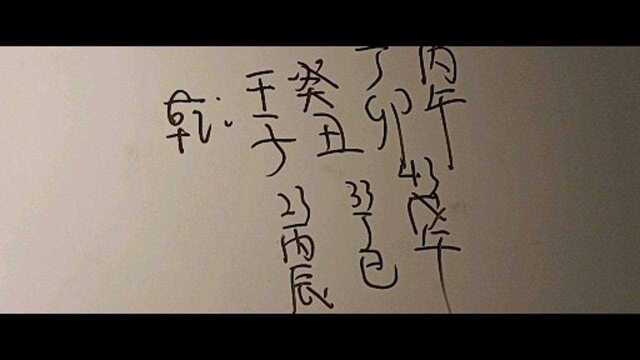 乾: 壬 癸 丁 丙
子 丑 卯 午
23 33 43
丙 丁 戊
辰 巳 午